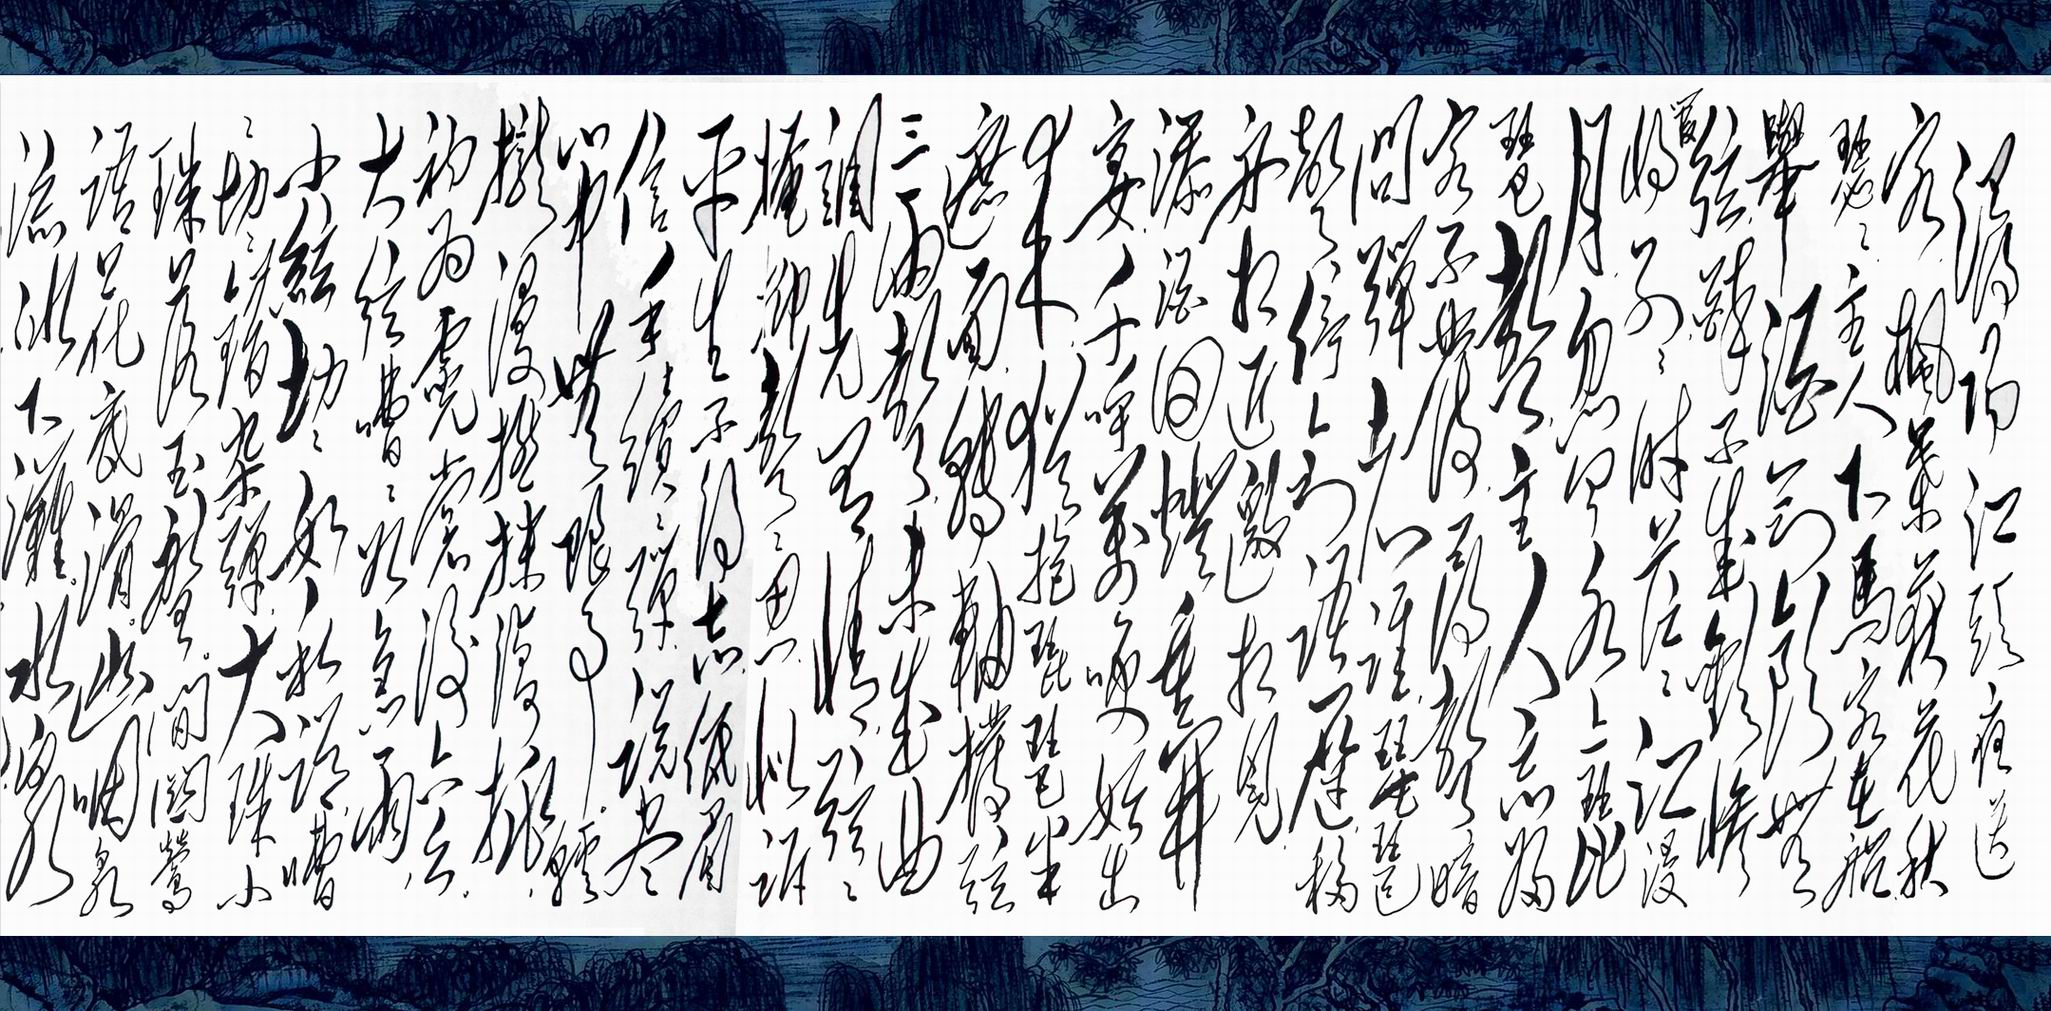 潯陽江頭夜送
客楓葉荻花秋
瑟々主人下馬客在船
舉酒欲飲無
管絃醉不成歡慘
將別々時茫々江浸
月忽聞水上琵琶
聲主人忘歸
客不發尋聲暗
問彈者誰琵琶
聲停欲語遲移
船相近邀相見
添酒回燈重開
宴千呼萬喚始出
來猶抱琵琶半
遮面轉軸撥絃
三兩聲未成曲
調先有情絃々
掩抑聲々思似訴
平生不得志低眉
信手續々彈說盡
心中無限事輕
攏慢撚抹復挑
初為霓裳後六么
大絃嘈々如急雨
小絃切々如私語嘈
々切々錯雜彈大珠小
珠落玉盤間關鶯
語花底滑幽咽泉
流冰下灘水泉